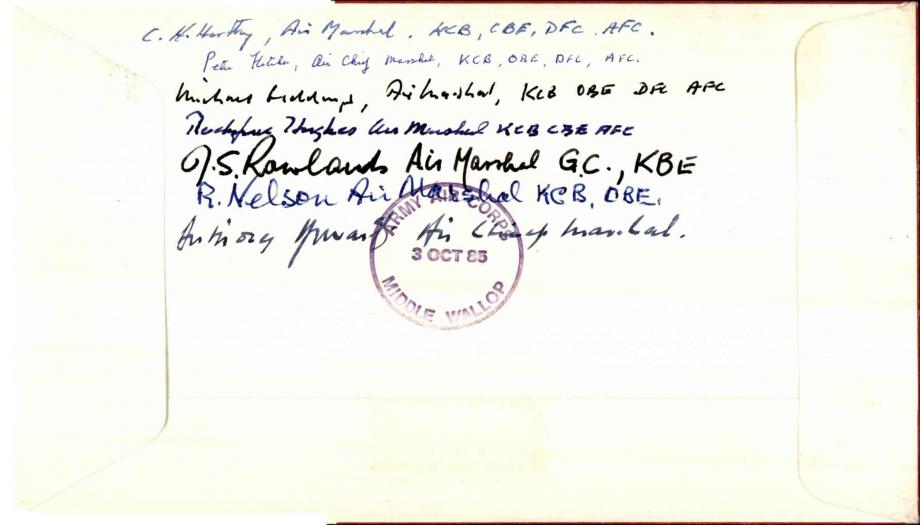 C. H. Hartley, Air Marshal. KCB, CBE, DFC, AFC.
Peter Fletcher, Air Chief Marshal, KCB, OBE, DFC, AFC.
Michael Beddings, Air Marshal, KCB OBE DFC AFC
Hughes Air Marshal KCB CBE AFC
J.S. Rowlands Air Marshal G.C., KBE
R. Nelson Air Marshal KCB, OBE.
Air Chief Marshal.
ARMY AIR CORPS
3 OCT 85
MIDDLE WALLOP